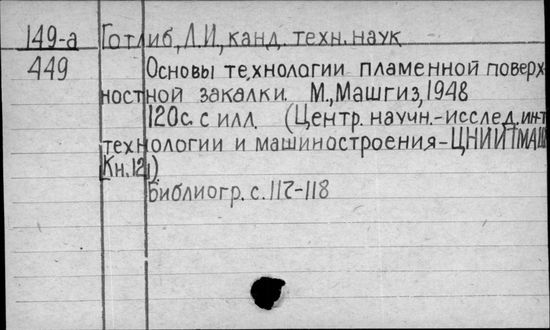 149-а Готлиб, Л.И, канд. техн. наук
449 Основы технологии пламенной поверх-
ностной закалки. М., Машгиз, 1948
120с. с илл. (Центр. научн.-исслед. ин-т
технологии и машиностроения-ЦНИИТМАШ
Кн.12)
Библиогр. с. 117-118